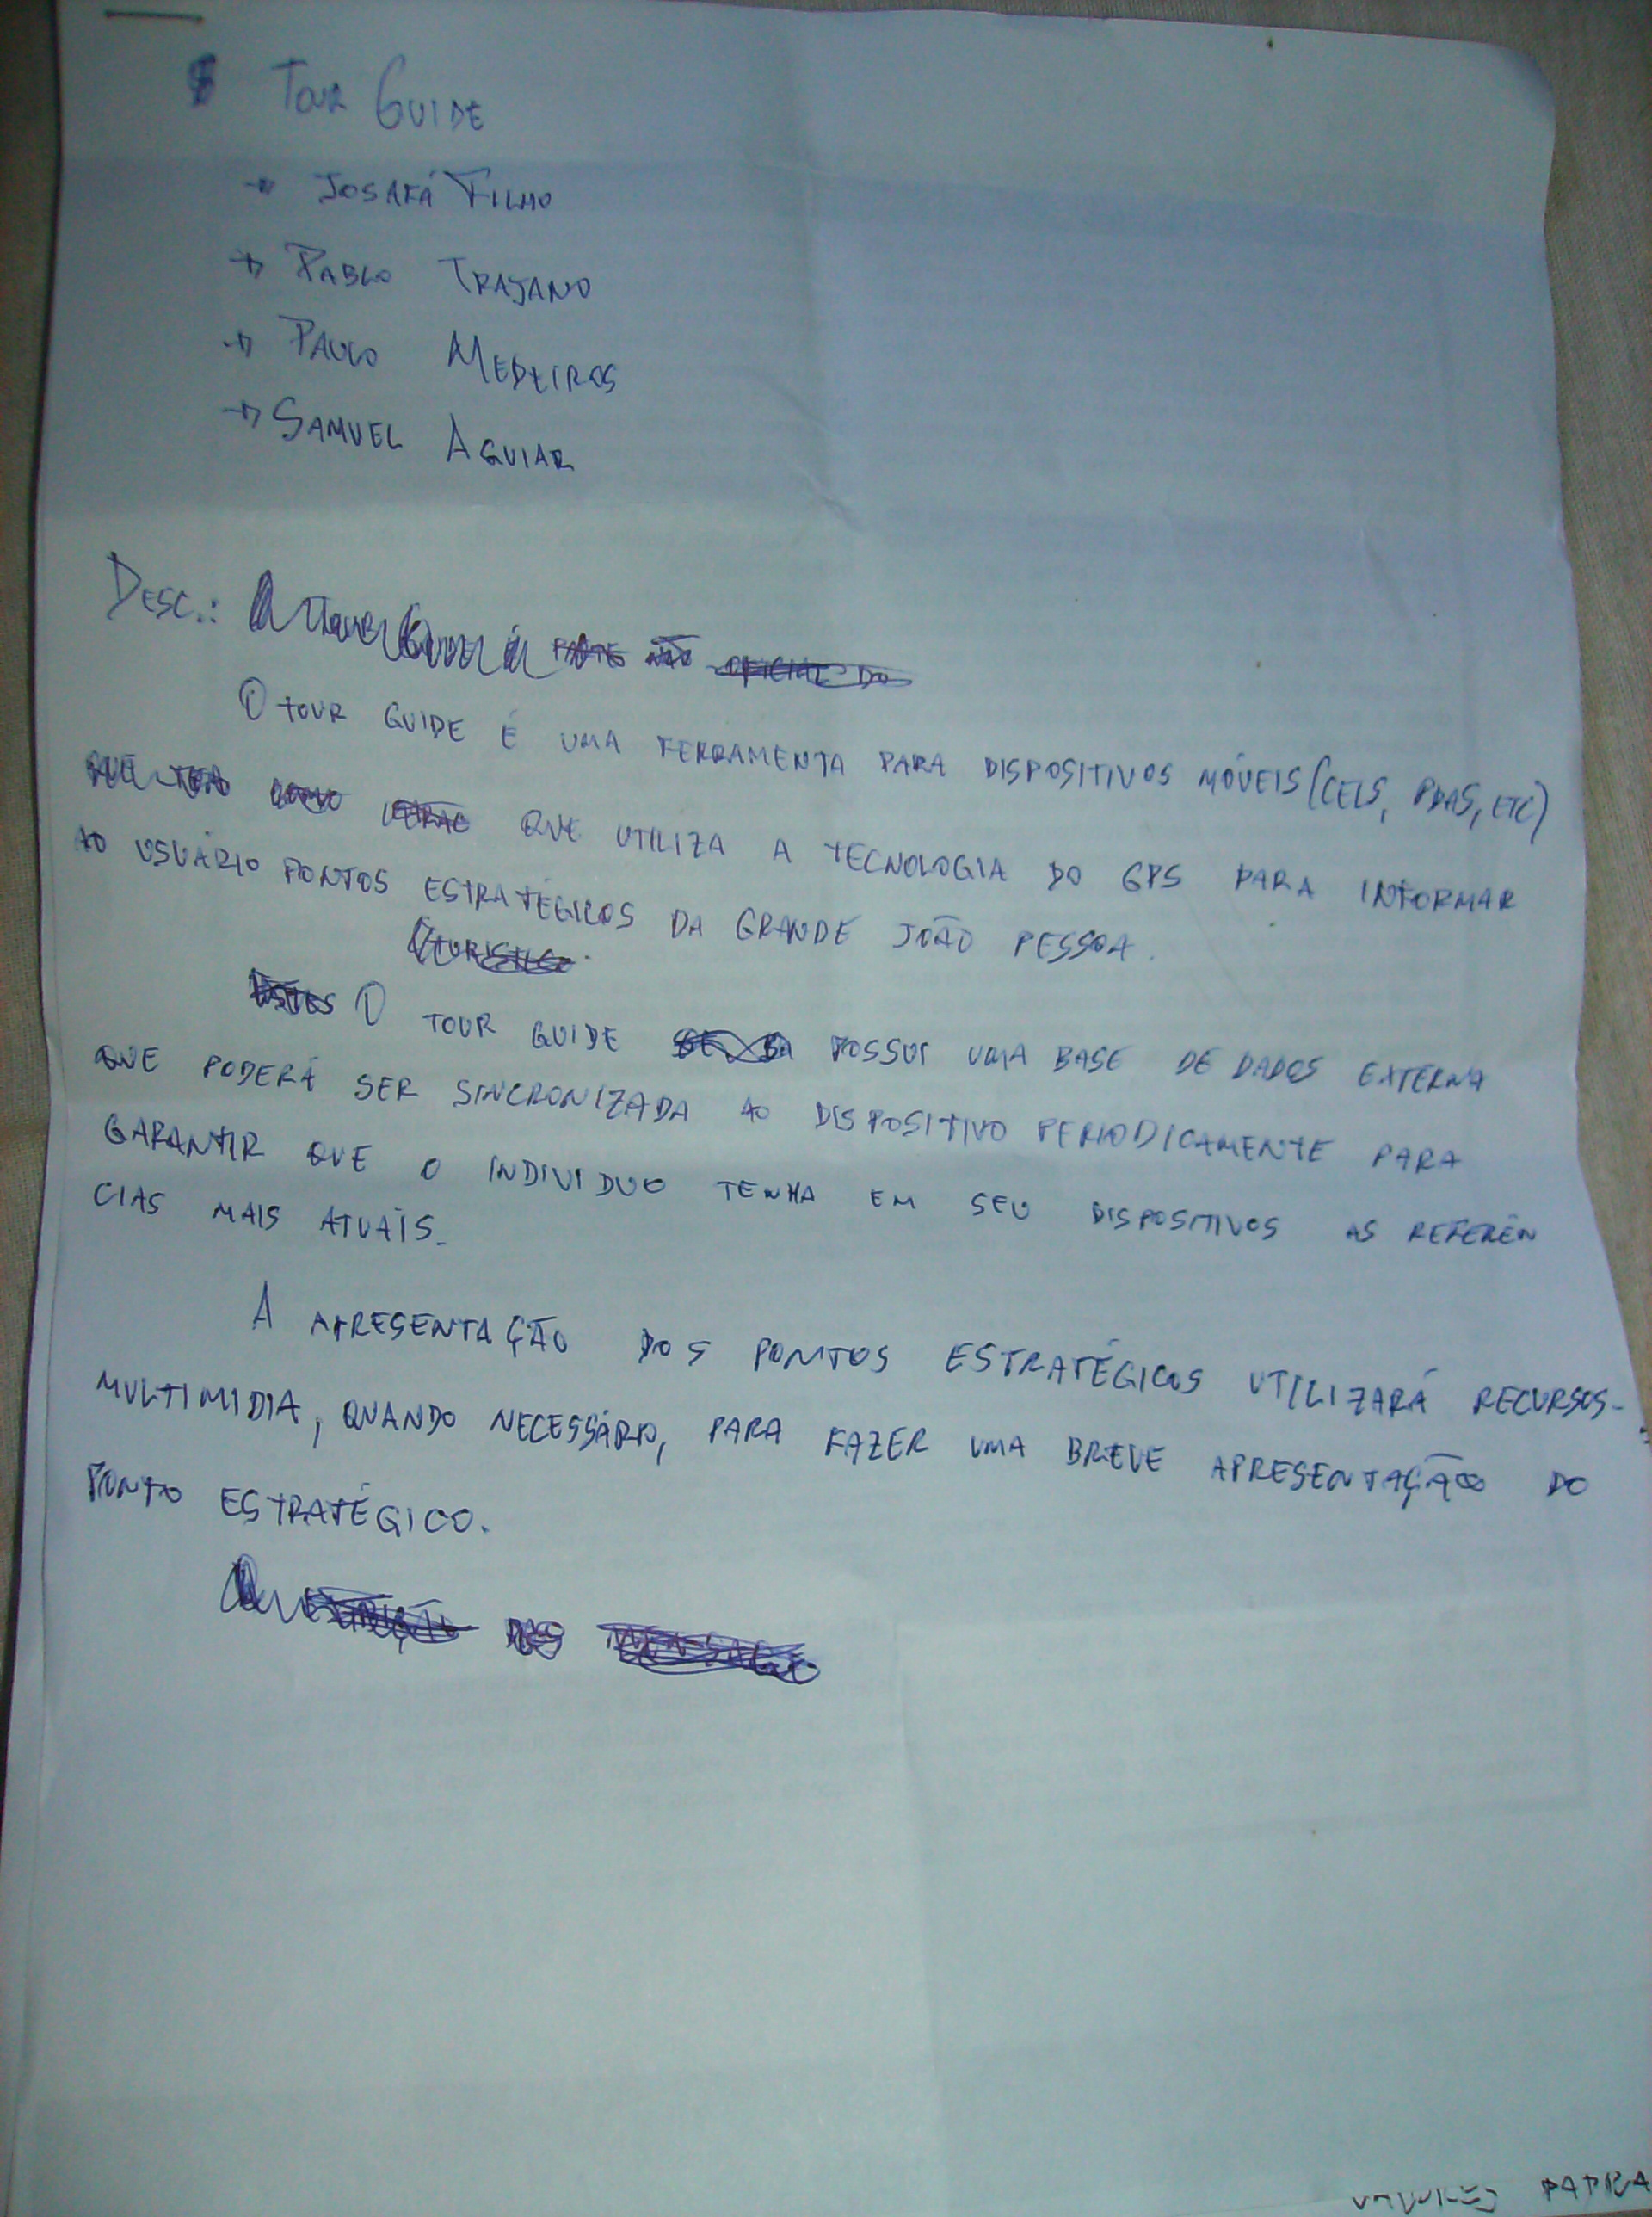 TOUR GUIDE
→ JOSAFÁ FILHO
→ PABLO TRAJANO
→ PAULO MEDEIROS
→ SAMUEL AGUIAR
DESC.:
O TOUR GUIDE É UMA FERRAMENTA PARA DISPOSITIVOS MÓVEIS (CELS, PDAS, ETC)
QUE UTILIZA A TECNOLOGIA DO GPS PARA INFORMAR
AO USUÁRIO PONTOS ESTRATÉGICOS DA GRANDE JOÃO PESSOA.
O TOUR GUIDE POSSUI UMA BASE DE DADOS EXTERNA
QUE PODERÁ SER SINCRONIZADA AO DISPOSITIVO PERIODICAMENTE PARA
GARANTIR QUE O INDIVIDUO TENHA EM SEU DISPOSITIVOS AS REFERÊN
CIAS MAIS ATUAIS.
A APRESENTAÇÃO DOS PONTOS ESTRATÉGICOS UTILIZARÁ RECURSOS
MULTIMIDIA, QUANDO NECESSÁRIO, PARA FAZER UMA BREVE APRESENTAÇÃO DO
PONTO ESTRATÉGICO.